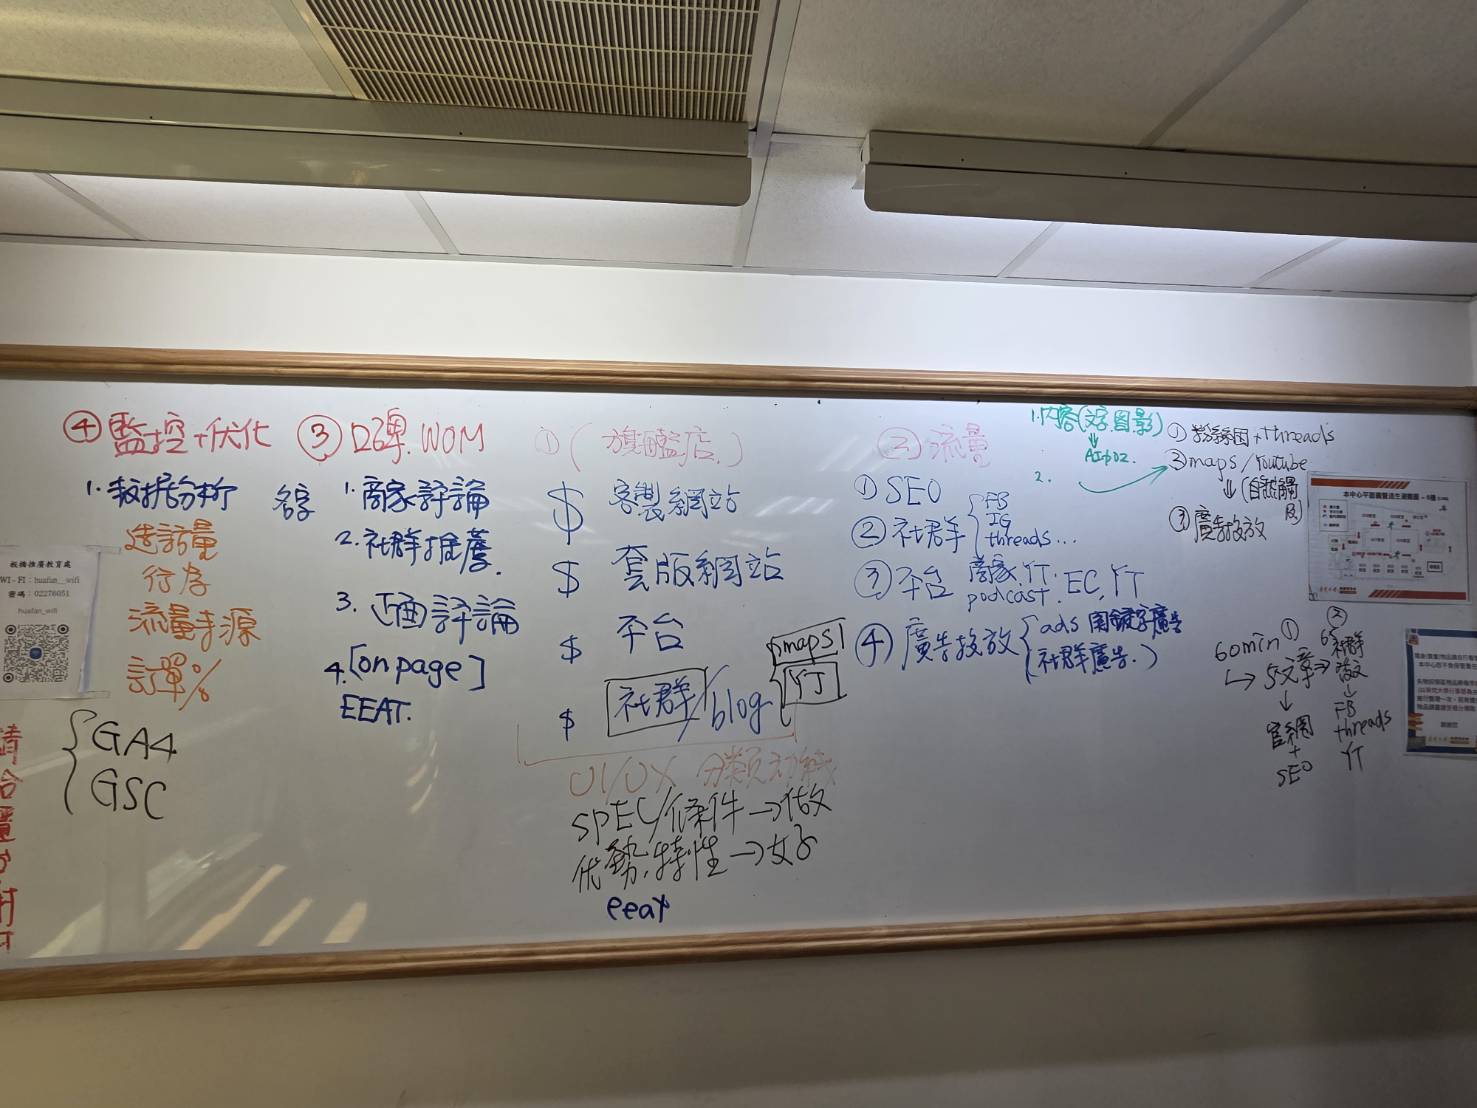 ④監控+优化
1.数据分析
造訪量
行為
流量來源
訂單%
GA4
GSC
③口碑.WOM
1.商家評論
2.社群推薦.
3.正面評論
4.[on page]
EEAT.
①(旗艦店.)
$ 客製網站
$ 套版網站
$ 平台
$ 社群/blog
maps
YT
UI/UX 分類功能
SPEC/條件→做
优勢.特性→好
eeat
②流量
①SEO
②社群
FB
IG
threads...
③平台 商家.YT.
podcast.EC,YT
④廣告投放
ads 関鍵字廣告
社群廣告.)
1.內容(文字圖影)
AI
2.
① threads
③maps/Youtube
(自然觸及
③廣告投放
60min
①
文章
官網
+
SEO
②
社群
FB
threads
YT
板橋推廣教育處
WI-FI：huafan_wifi
密碼：02276051
huafan_wifi
請